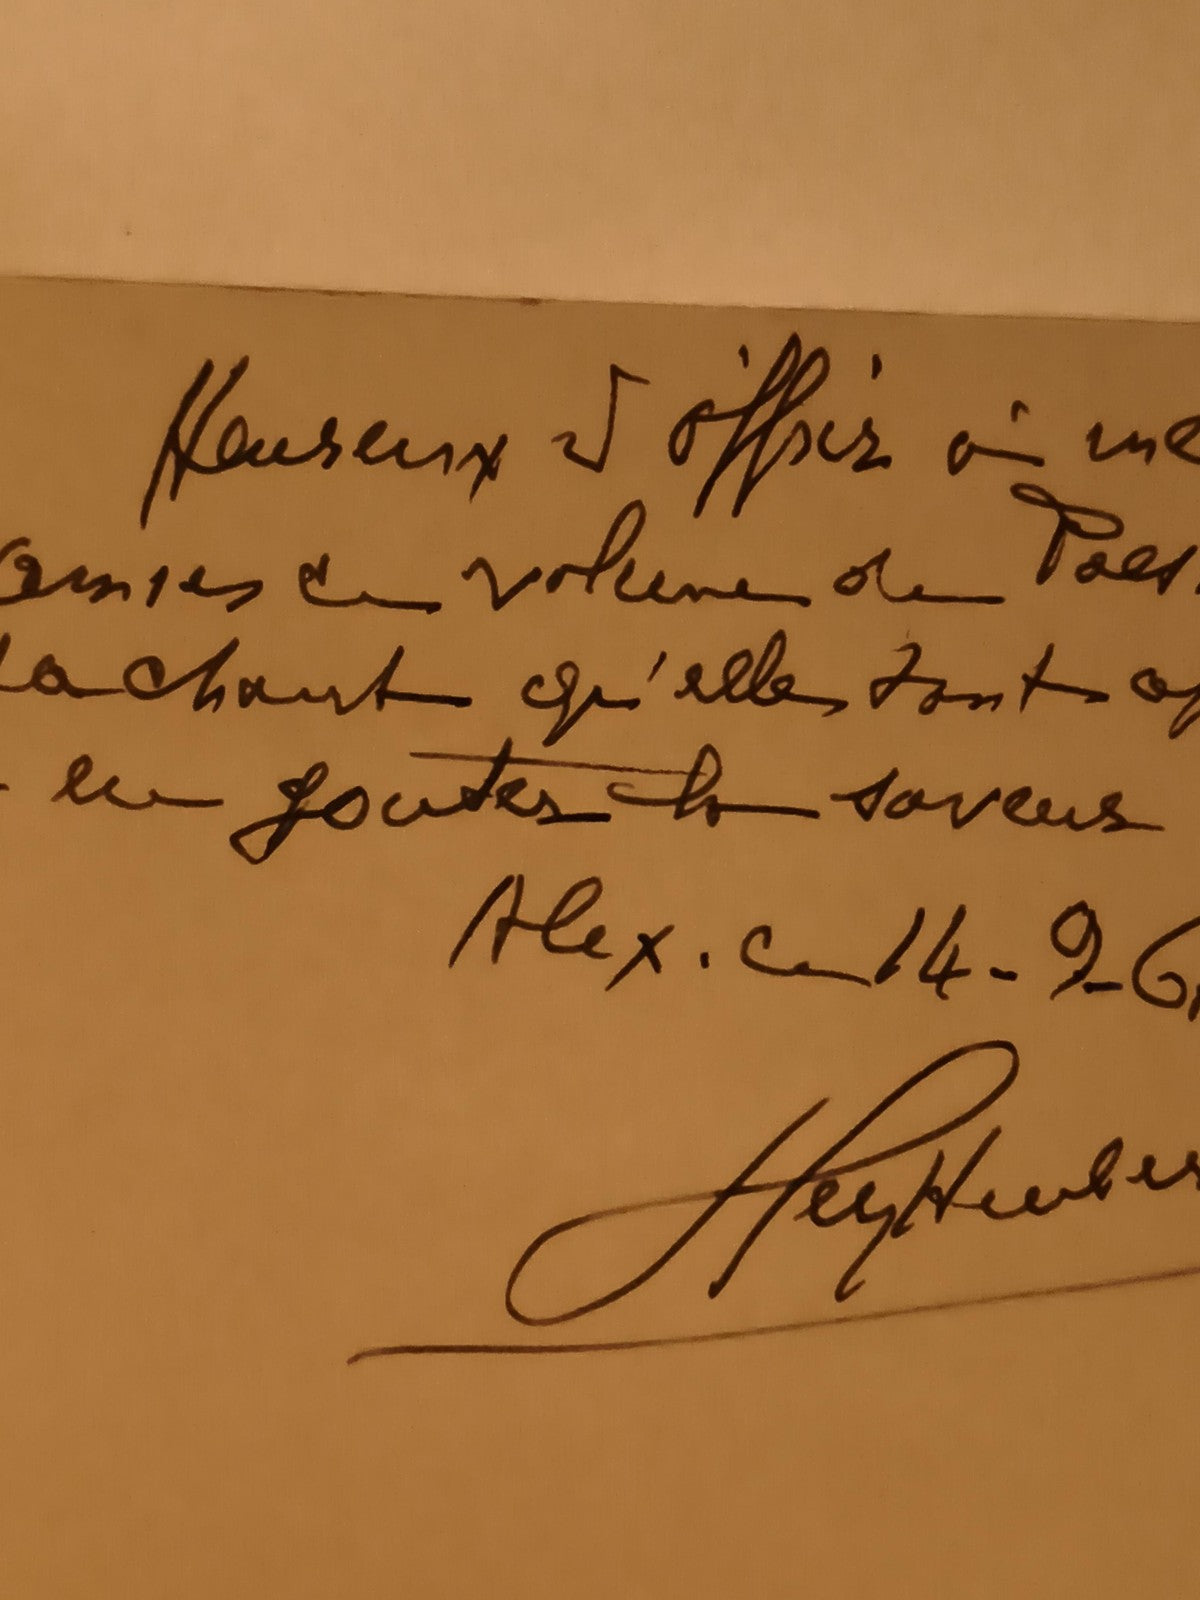 Heureux d'offrir à me
amies ce volume de Poés
sachant qu'elles sont ap
en goûter la saveur
Alex. ce 14-9-6